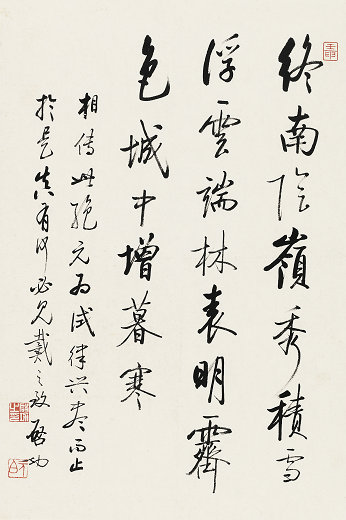 終南陰嶺秀積雪
浮雲端林表明霽
色城中增暮寒
相傳此絕元為試律興盡而止
於是真有何必見戴之致啟功